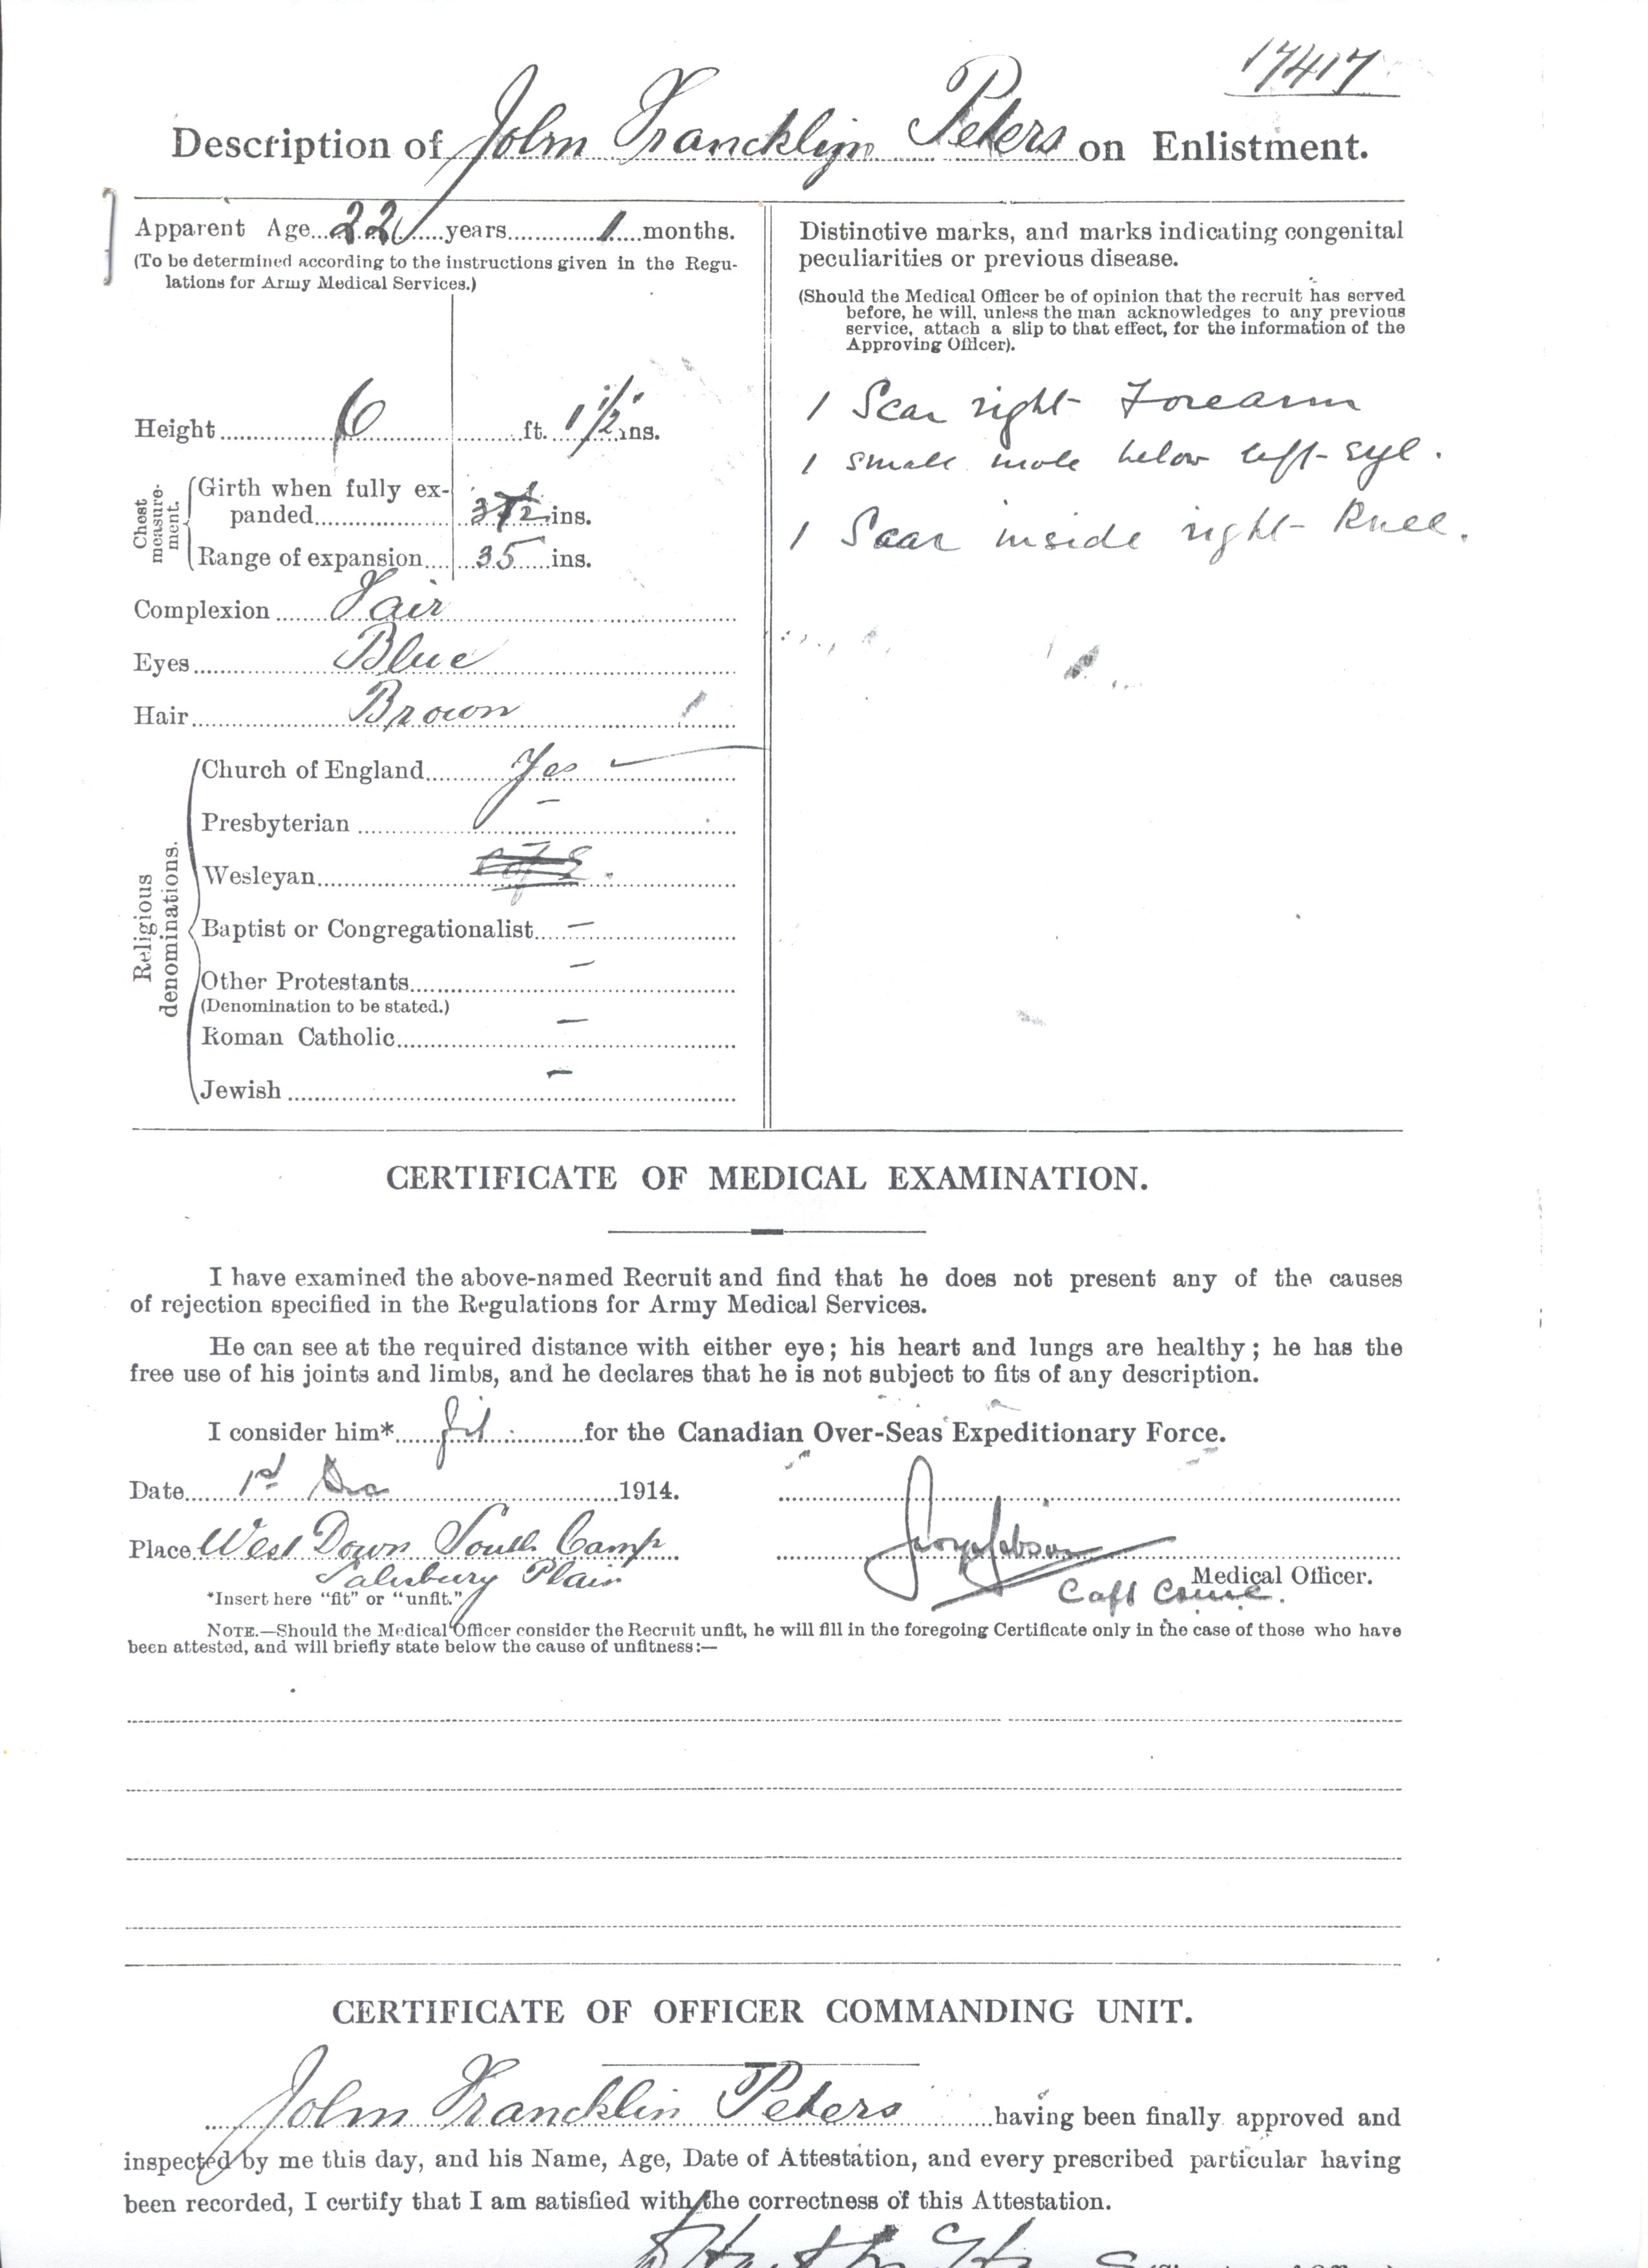 17417
Description of John Francklyn Peters on Enlistment.
Apparent Age 22 years 1 months.
(To be determined according to the instructions given in the Regu-
lations for Army Medical Services.)
Height 6 ft. 1 1/2 ins.
Chest measure-ment.
Girth when fully ex-
panded 37 1/2 ins.
Range of expansion 35 ins.
Complexion Fair
Eyes Blue
Hair Brown
Religious denominations.
Church of England Yes
Presbyterian –
Wesleyan C of E .
Baptist or Congregationalist –
Other Protestants –
(Denomination to be stated.)
Roman Catholic –
Jewish –
Distinctive marks, and marks indicating congenital
peculiarities or previous disease.
(Should the Medical Officer be of opinion that the recruit has served
before, he will, unless the man acknowledges to any previous
service, attach a slip to that effect, for the information of the
Approving Officer).
1 Scar right Forearm
1 small mole below left eye.
1 Scar inside right Knee.
CERTIFICATE OF MEDICAL EXAMINATION.
I have examined the above-named Recruit and find that he does not present any of the causes
of rejection specified in the Regulations for Army Medical Services.
He can see at the required distance with either eye; his heart and lungs are healthy; he has the
free use of his joints and limbs, and he declares that he is not subject to fits of any description.
I consider him* fit for the Canadian Over-Seas Expeditionary Force.
Date 1st Dec 1914.
Place West Down South Camp
Salisbury Plain
Medical Officer.
Capt
*Insert here "fit" or "unfit."
NOTE.—Should the Medical Officer consider the Recruit unfit, he will fill in the foregoing Certificate only in the case of those who have
been attested, and will briefly state below the cause of unfitness:—
CERTIFICATE OF OFFICER COMMANDING UNIT.
John Francklin Peters having been finally approved and
inspected by me this day, and his Name, Age, Date of Attestation, and every prescribed particular having
been recorded, I certify that I am satisfied with the correctness of this Attestation.